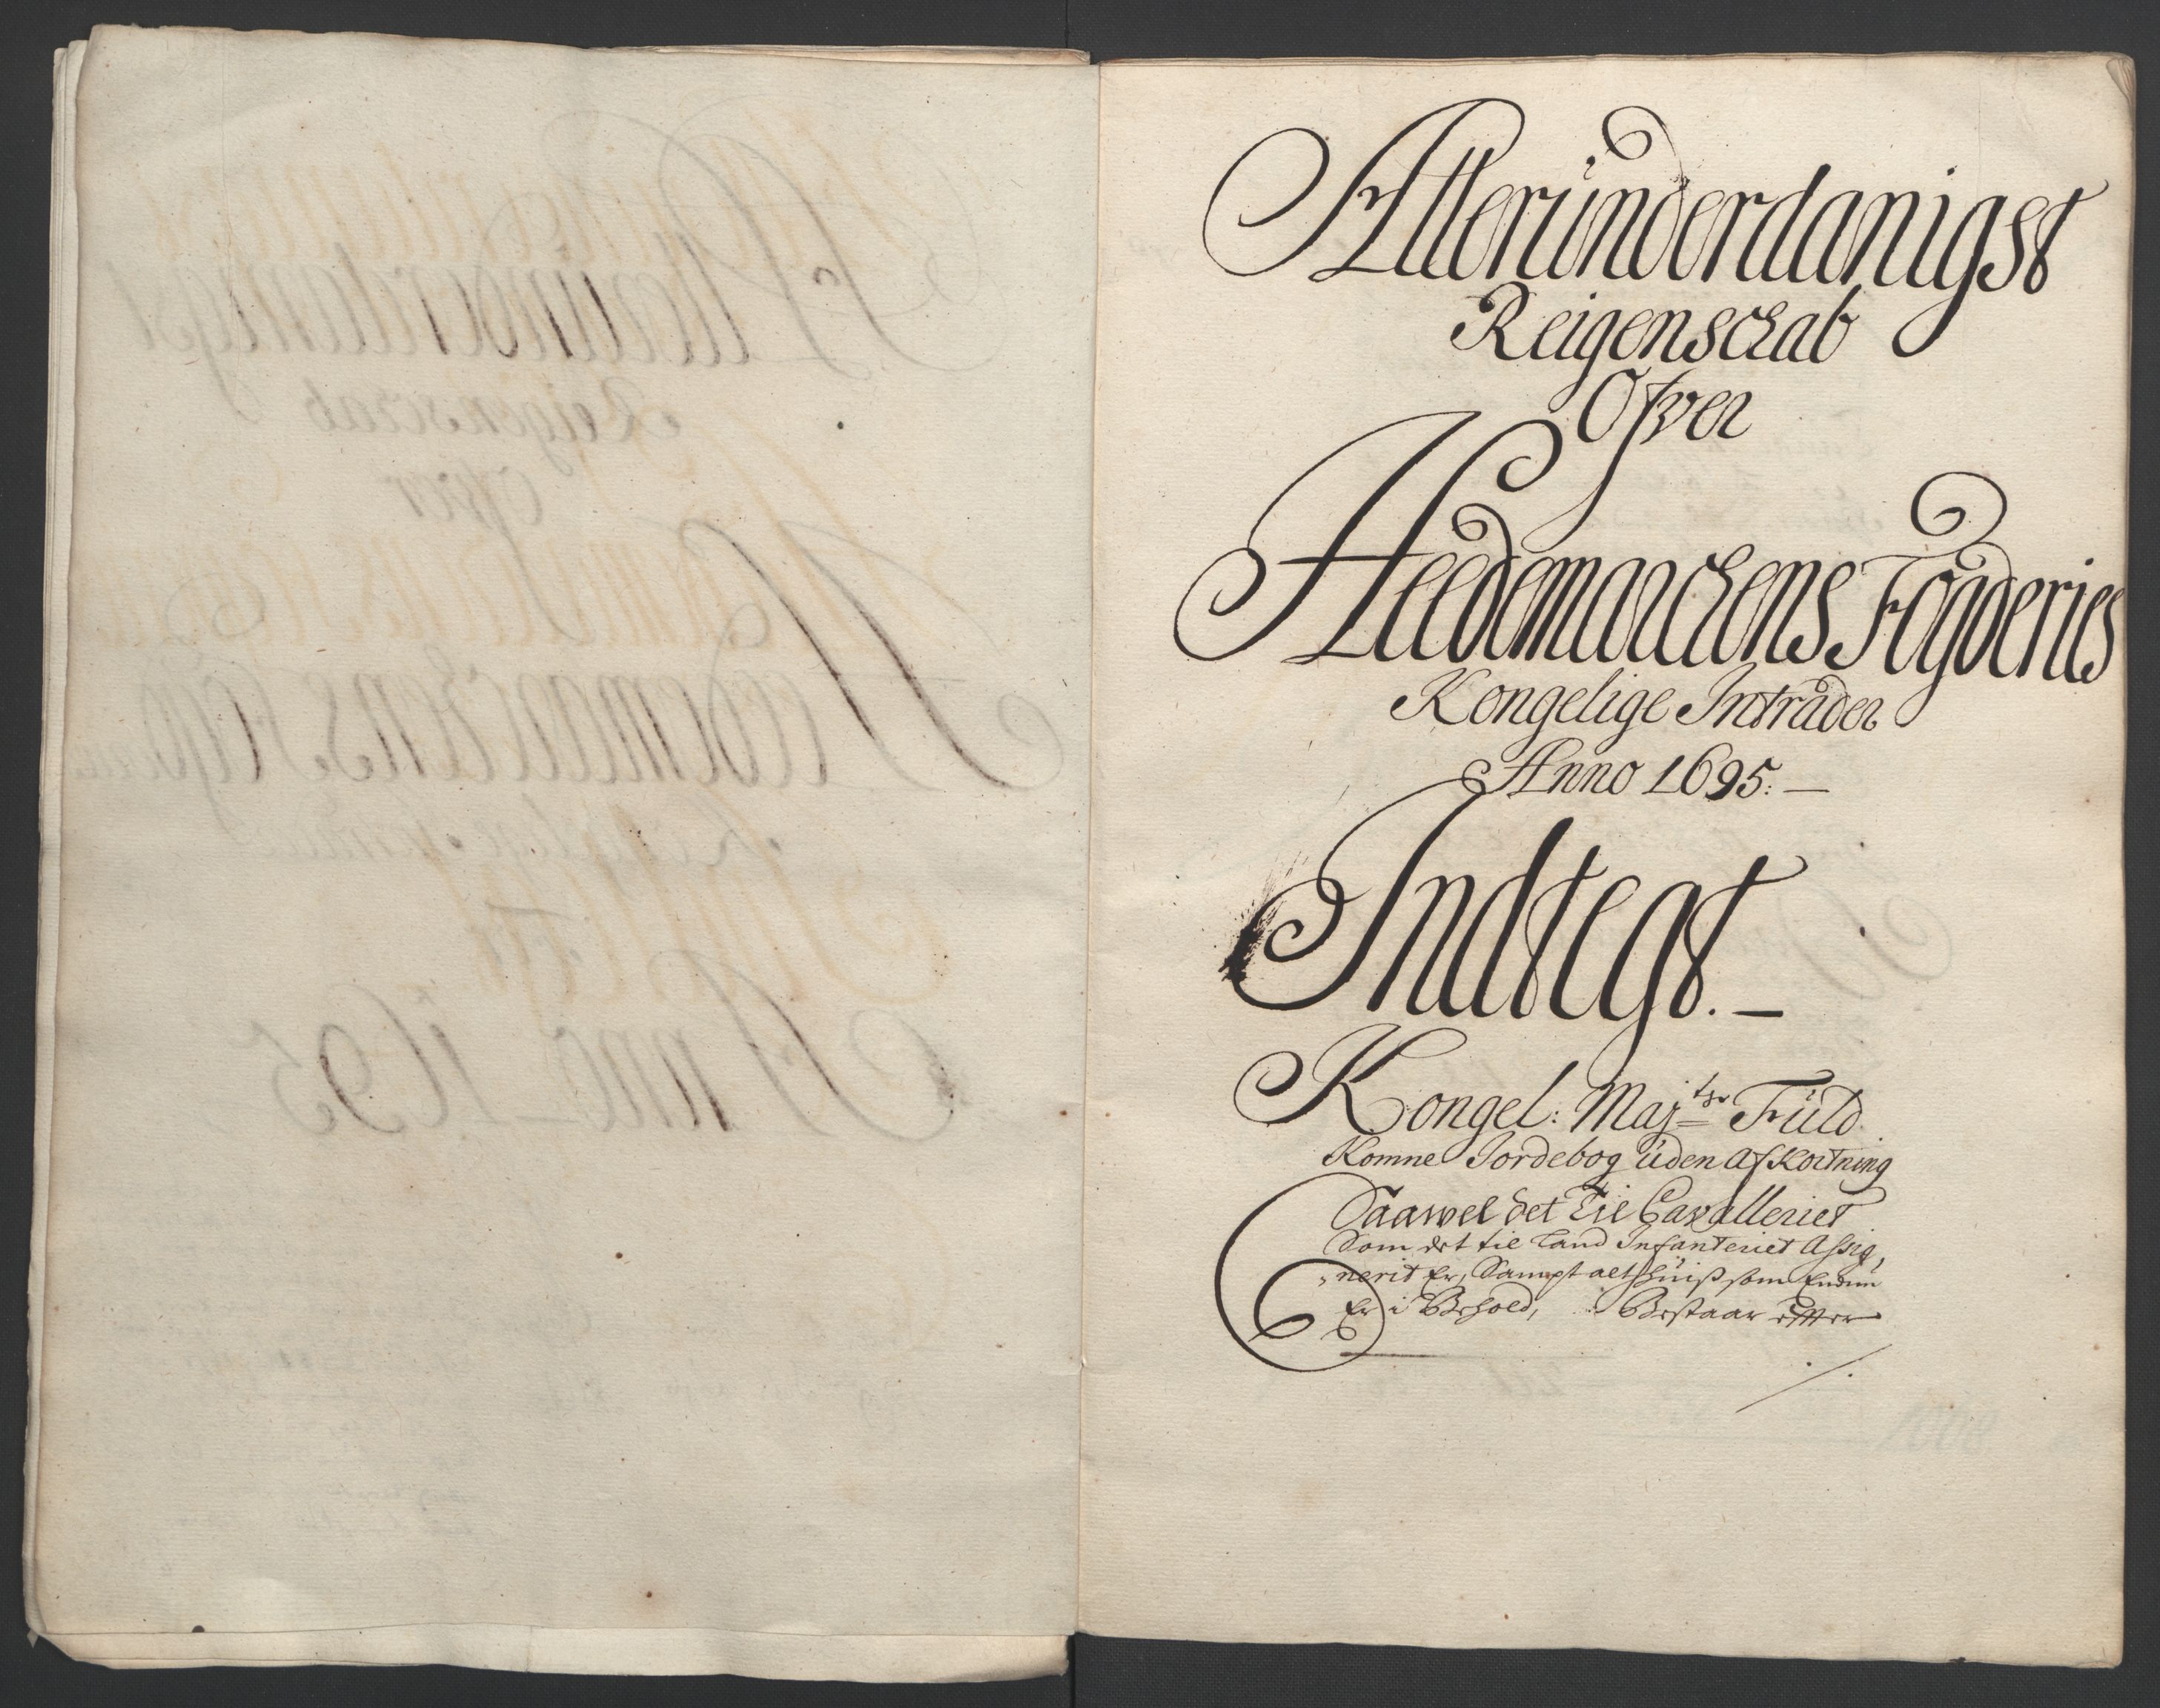 Alleründerdanigst
Reigenschab
Ofver
Heedemarchens Fogderies
Kongelige Intrader
Anno 1695: —
Indtegt. —
Kongel: Maj^ts Füld
Komne Jordebog üden Afkortning
Saawel det Til Cavalleriet
Som det til Land Infanteriet Assig,
,,nerit Er, Sampt alt huiss som Endnu
Er i Behold, Bestaar effter